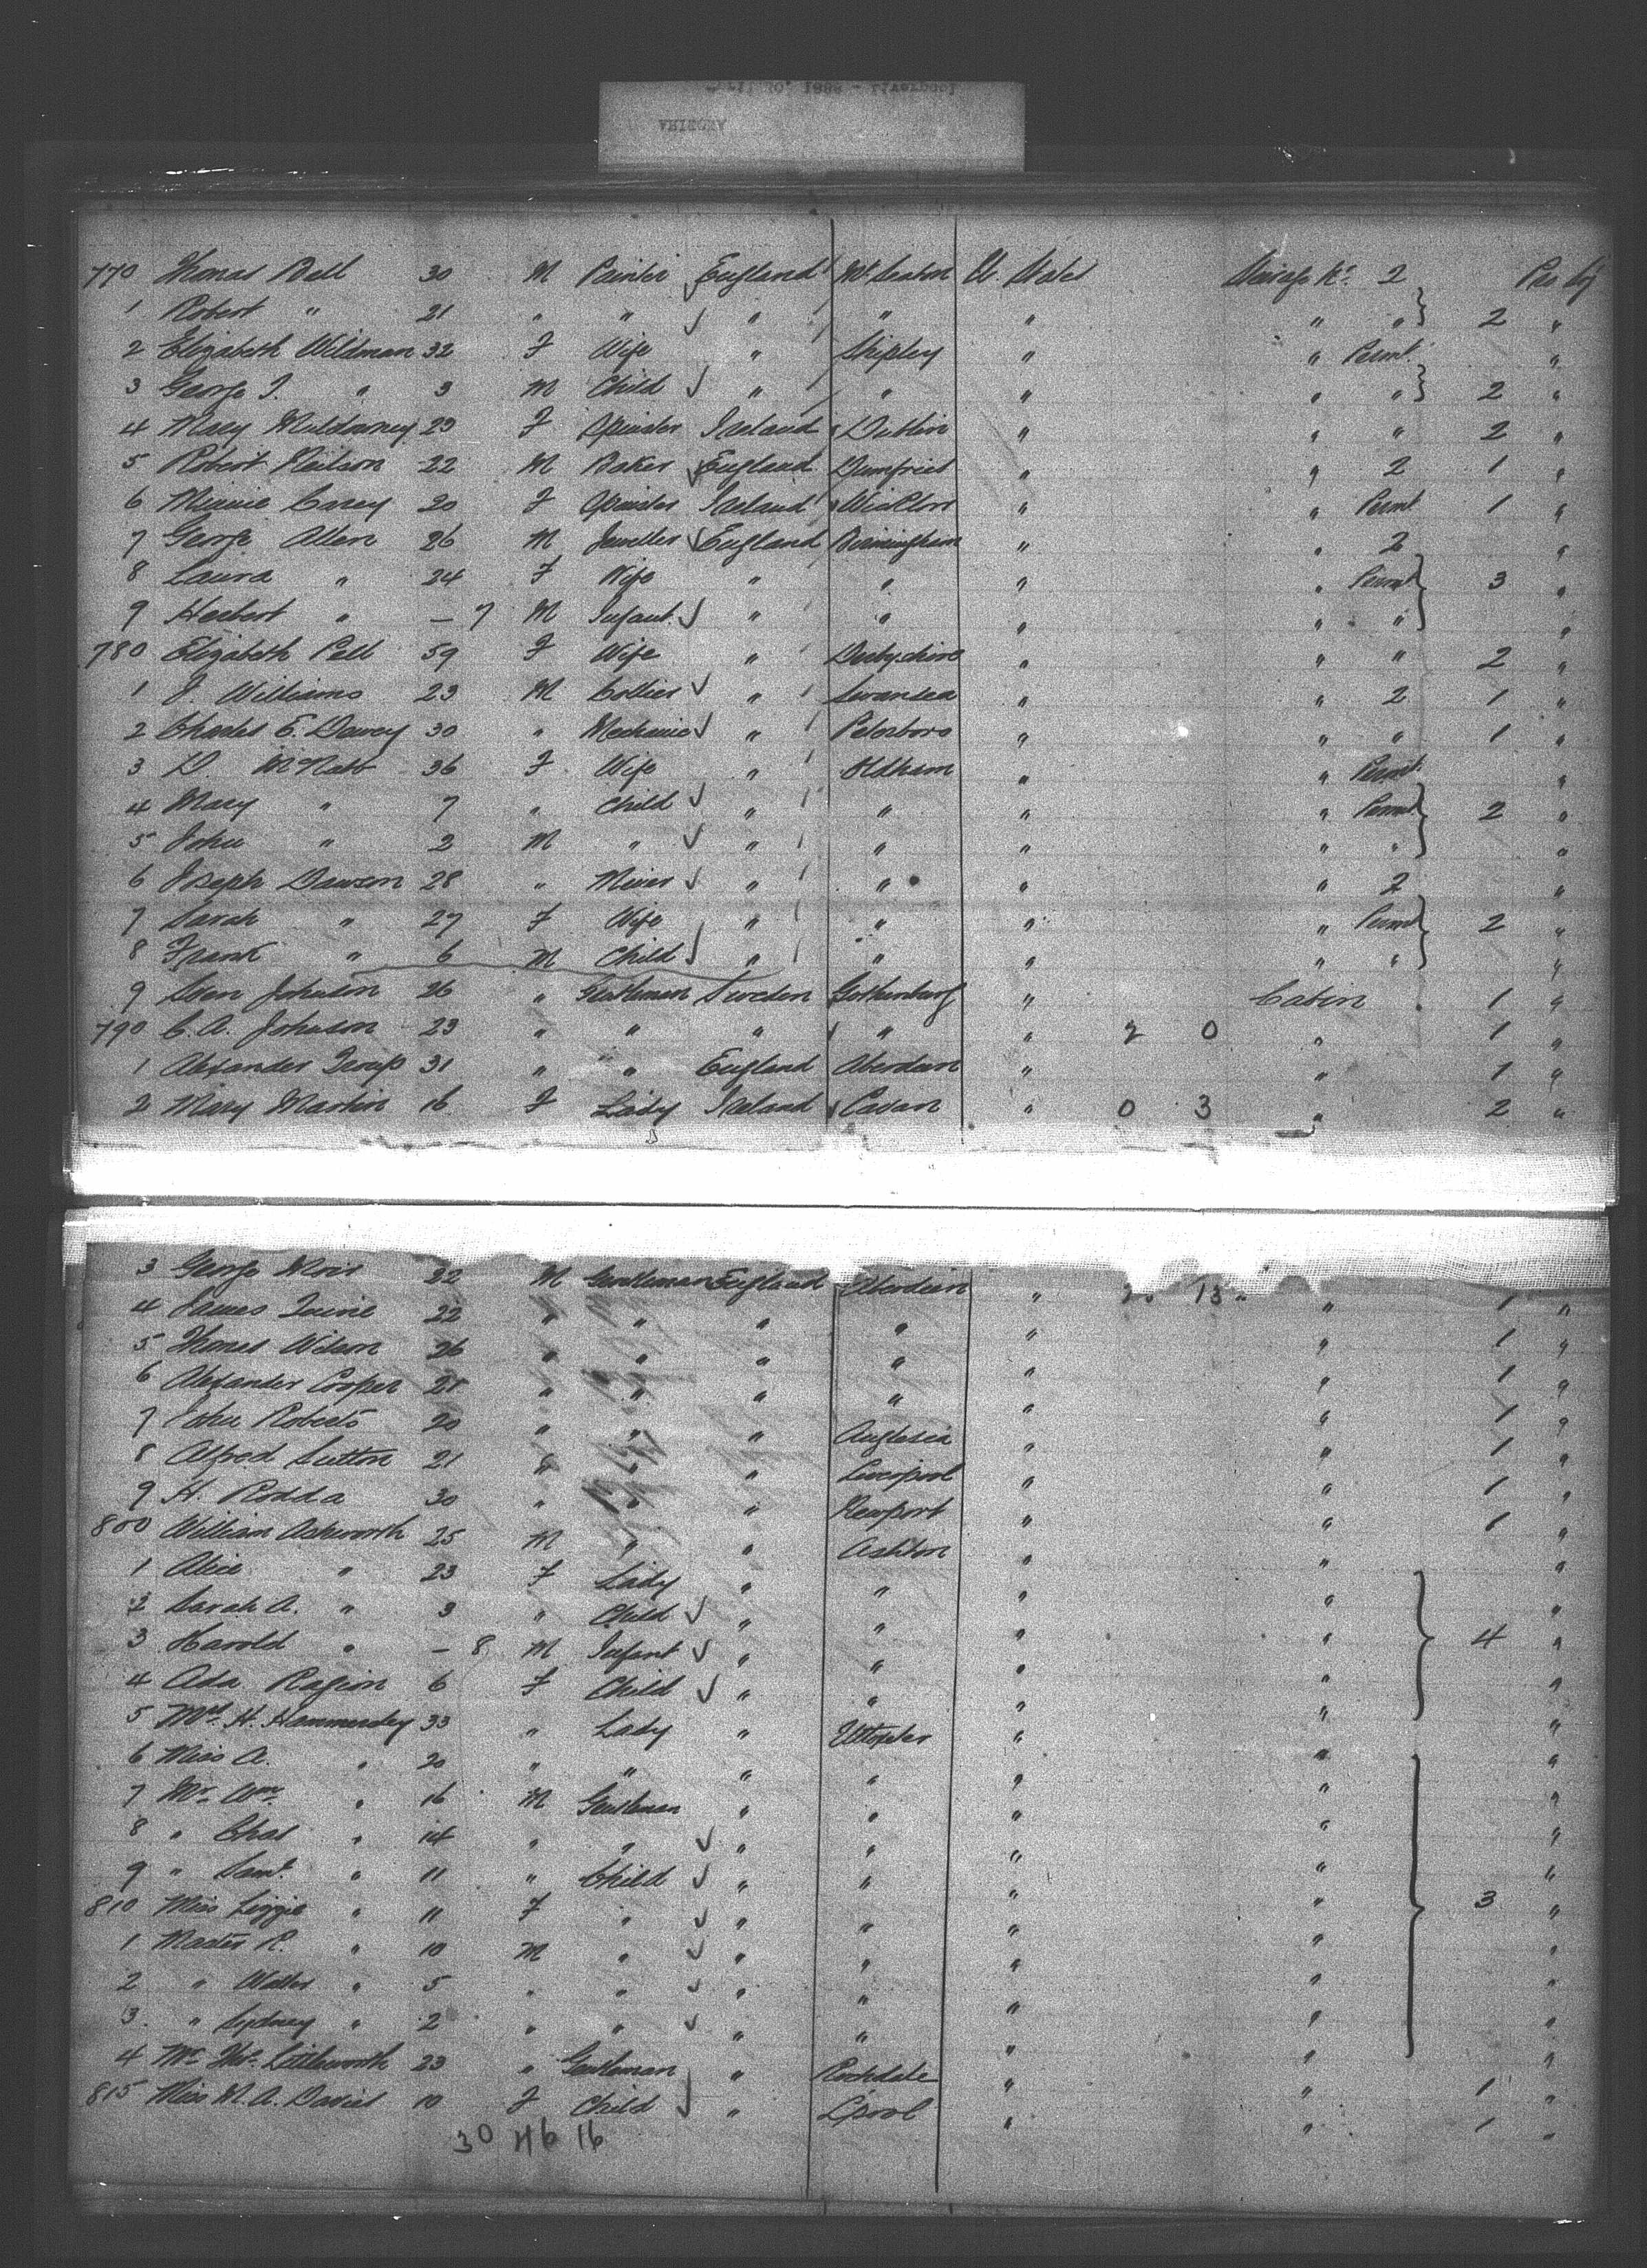 770 Thomas Bell 30 M England U. States 2
1 Robert " 21 " " " " " " " 2 "
2 Elizabeth Wildman 32 F Wife " Shipley " " Permt. "
3 George " 3 M Child " " " " " 2 "
4 Mary 29 F Spinster Ireland Dublin " " " 2 "
5 Robert Neilson 22 M Baker England Dumfries " " 2 1 "
6 Minnie Carey 20 F Spinster Ireland Wicklow " " Permt 1 "
7 George Allen 26 M Jeweller England Birmingham " " 2 "
8 Laura " 24 F Wife " " " " Permt 3 "
9 Herbert " - 7 M Infant " " " " " "
780 Elizabeth Pell 59 F Wife " Derbyshire " " " 2 "
1 J. Williams 23 M Collier " Swansea " " 2 1 "
2 Charles E. Davey 30 " Mechanic " Peterboro " " " 1 "
3 D. McNab 36 F Wife " Oldham " " Permt. "
4 Mary " 7 " Child " " " " Permt 2 "
5 John " 2 M " " " " " " "
6 Joseph Dawson 28 " Miner " " " " 2 "
7 Sarah " 27 F Wife " " " " Permt 2 "
8 Frank " 6 M Child " " " " " "
9 Sven Johnson 26 " Gentleman Sweden Gothenburg " Cabin 1 "
790 C. A. Johnson 23 " " " " " 2 0 " 1 "
1 Alexander Troup 31 " " England Aberdeen " " 1 "
2 Mary Martin 16 F Lady Ireland Cavan " 0 3 " 2 "
3 George 22 M Gentleman England Aberdeen " 13 " " 1 "
4 James 22 " " " " " " 1 "
5 Thomas Wilson 26 " " " " " " 1 "
6 Alexander Cooper 21 " " " " " " 1 "
7 John Roberts 20 " " " Anglesia " " 1 "
8 Alfred Sutton 21 " " " Liverpool " " 1 "
9 H. Rodda 30 " " " Newport " " 1 "
800 William Ackworth 25 M " " Ashton " " "
1 Alice " 23 F Lady " " " " "
2 Sarah A. " 3 " Child " " " " "
3 Harold " - 8 M Infant " " " " 4 "
4 Ada 6 F Child " " " " "
5 Mrs. H. Hammersley 33 " Lady " " " "
6 Miss A. " 20 " " " " " " "
7 Mr. Wm. " 16 M Gentleman " " " " "
8 " Chas " 14 " " " " " " "
9 " Saml. " 11 " Child " " " " "
810 Miss Lizzie " 11 F " " " " " 3 "
1 Master R. " 10 M " " " " " "
2 " Walter " 5 " " " " " " "
3 " Sydney " 2 " " " " " " "
4 Mr. Littleworth 23 " Gentleman " Rochdale " " 1 "
815 Miss M. A. Davies 10 F Child " Lpool " " 1 "
30 46 16